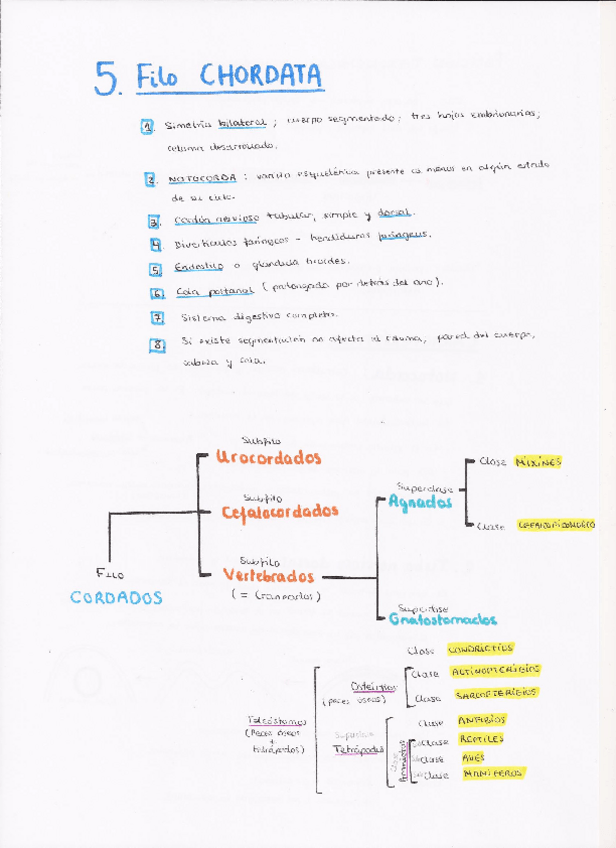 5. Filo CHORDATA
1. Simetría bilateral; cuerpo segmentado; tres hojas embrionarias;
celoma desarrollado.
2. NOTOCORDA: varilla esquelética presente al menos en algún estado
de su ciclo.
3. Cordón nervioso tubular, simple y dorsal.
4. Divertículos faríngeos - hendiduras faríngeas.
5. Endostilo o glándula tiroides.
6. Cola postanal (prolongada por detrás del ano).
7. Sistema digestivo completo.
8. Si existe segmentación no afecta al celoma, pared del cuerpo,
cabeza y cola.
Subfilo
Urocordados
Clase MIXINES
Superclase
Agnados
Subfilo
Cefalocordados
Clase
Filo
CORDADOS
Subfilo
Vertebrados
(= Craneados)
Superclase
Gnatostomados
Clase CONDRICTIOS
Osteictios
(peces óseos)
Clase ACTINOPTERIGIOS
Clase SARCOPTERIGIOS
Teleóstomos
(Peces óseos
+
tetrápodos)
Superclase
Tetrápodos
Clase ANFIBIOS
Clase
Amniotas
Subclase REPTILES
Subclase AVES
Subclase MAMÍFEROS